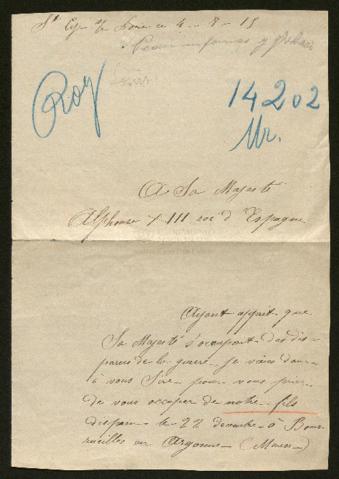 St Cyr ce 4-8-15
Roy
14202
Mr.
A Sa Majesté
Alphonse XIII roi d'Espagne
Ayant apprit que
Sa Majesté s'occupait des dis-
parus de la guerre je viens donc
à vous Sire pour vous prier
de vous occuper de notre fils
disparu le 22 decembre à Bou-
reuilles en Argonne (Meuse)